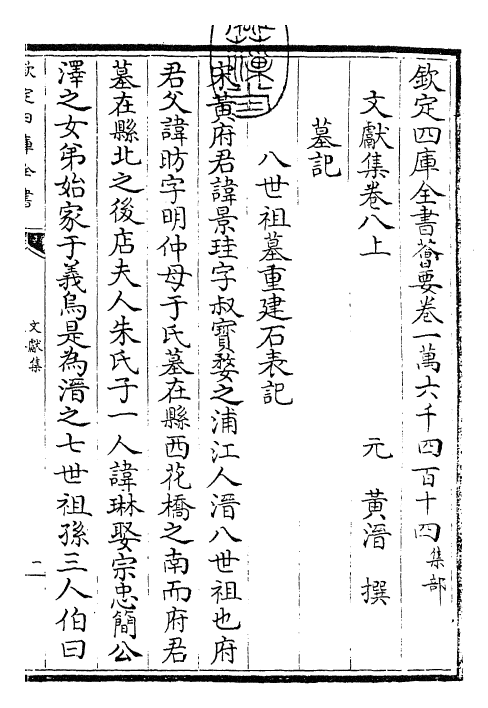 欽定四庫全書薈要卷一萬六千四百十四集部
文獻集卷八上
元 黃溍 撰
墓記
八世祖墓重建石表記
宋黃府君諱景珪字叔寶婺之浦江人溍八世祖也府
君父諱昉字明仲母于氏墓在縣西花橋之南而府君
墓在縣北之後店夫人朱氏子一人諱琳娶宗忠簡公
澤之女弟始家于義烏是為溍之七世祖孫三人伯曰
欽定四庫全書
文獻集
二